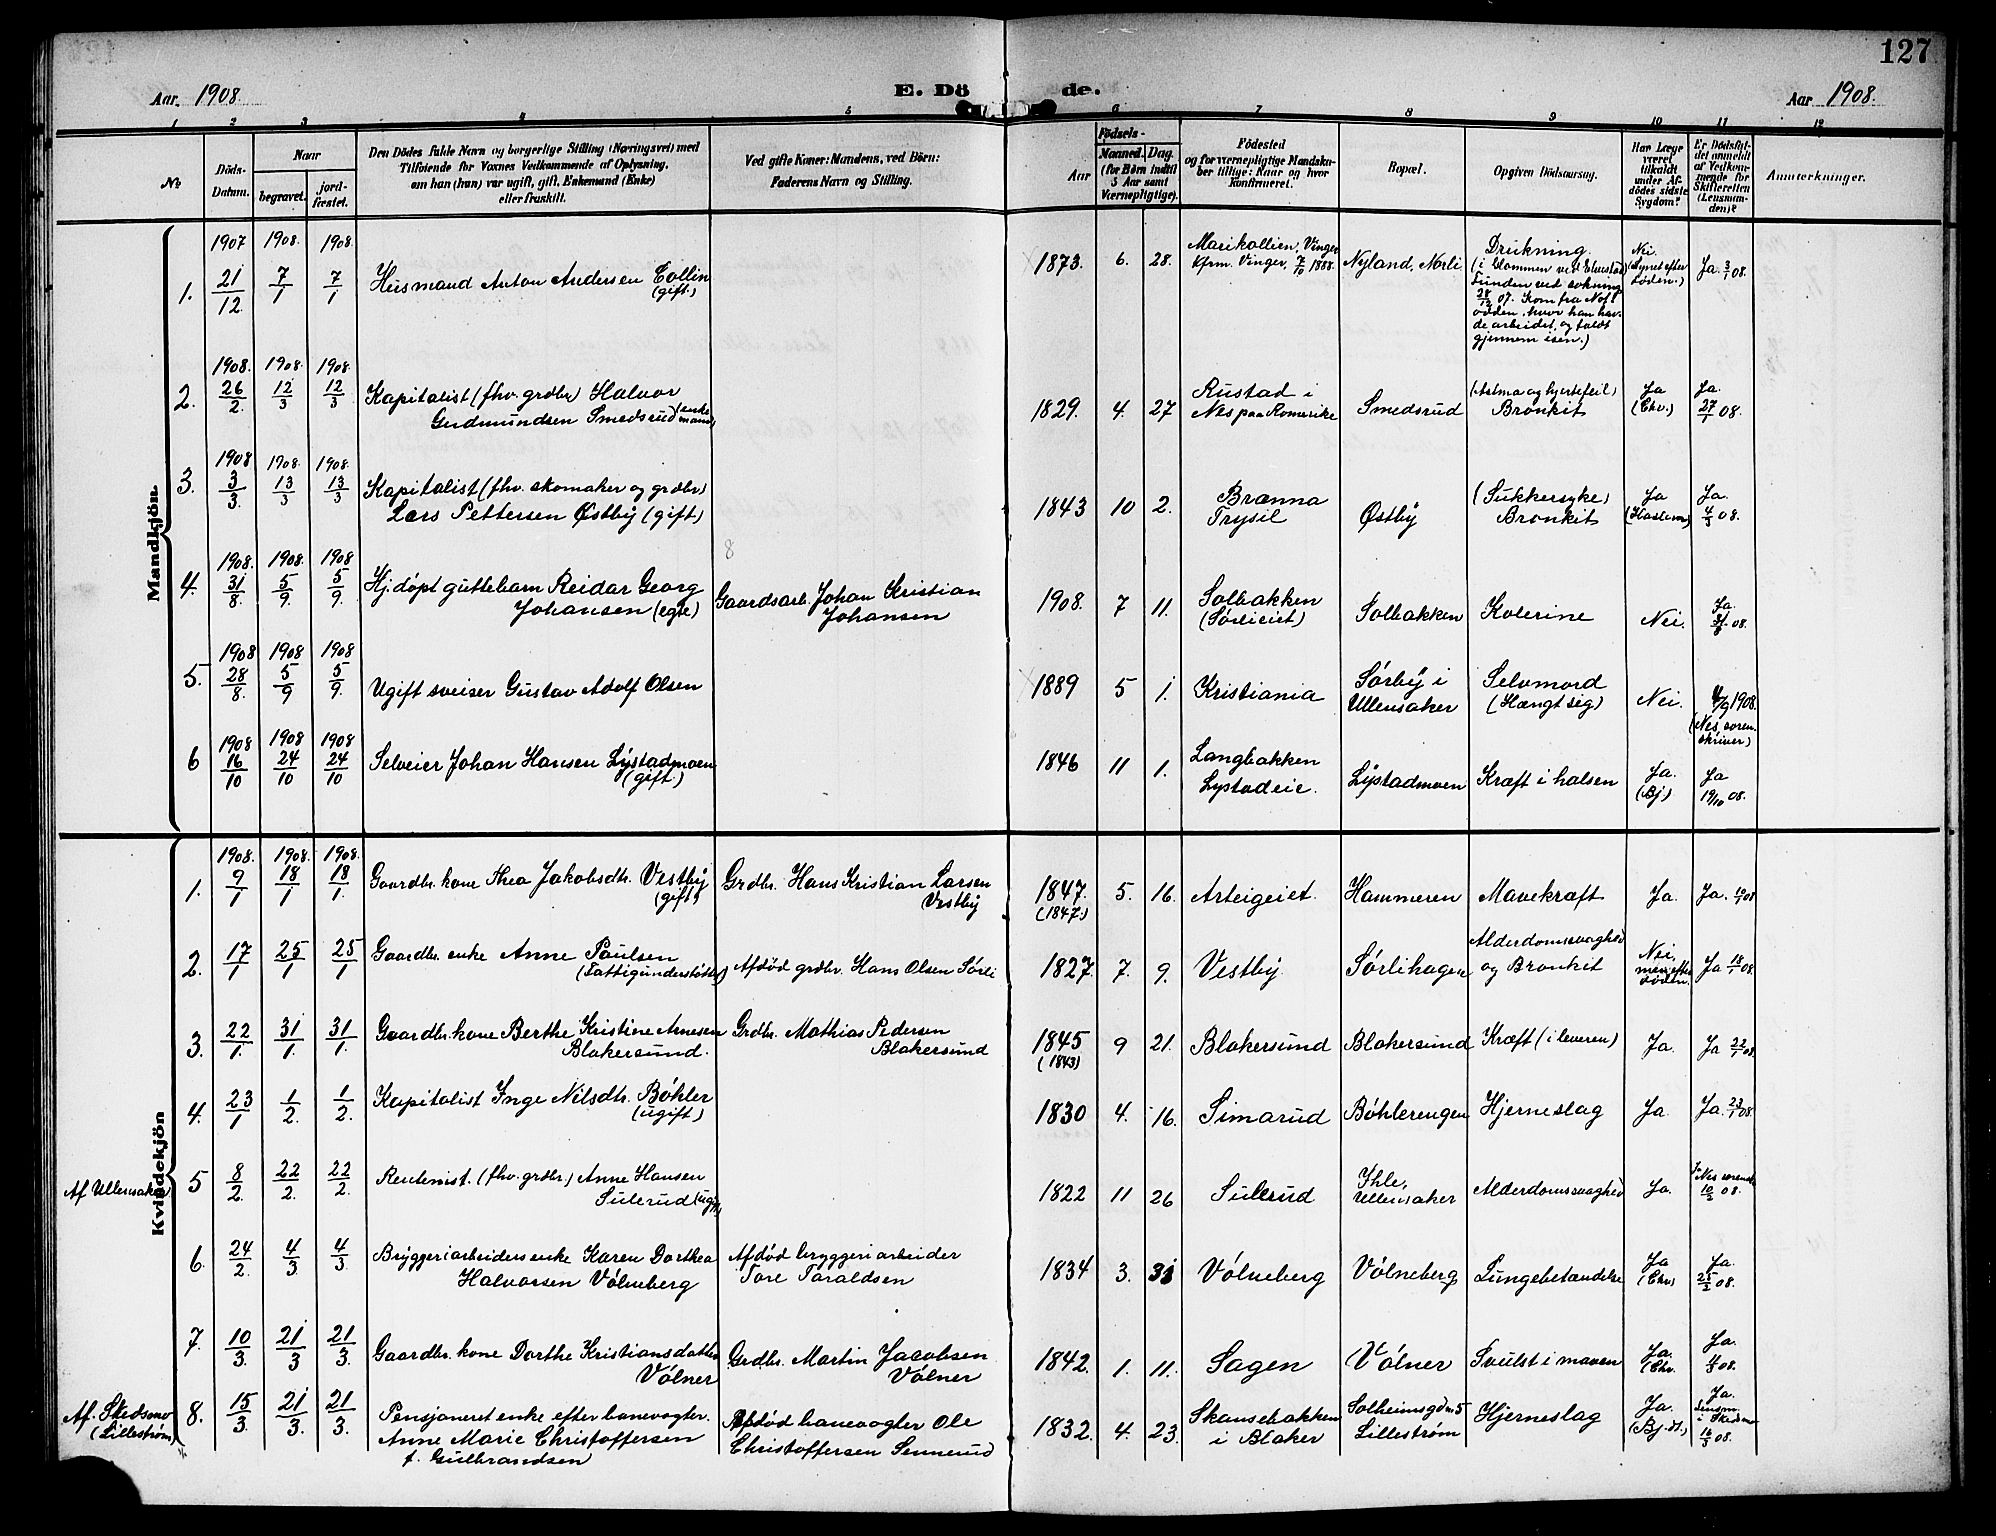 127
Aar 1908.
E. Döde.
Aar 1908.
1 2 3 4 5 6 7 8 9 10 11 12
No
Döds-Datum.
Naar
begravet.
jordfæstet.
Den Dödes fulde Navn og borgerlige Stilling (Næringsvei) med
Tilföiende for Voxnes Vedkommende af Oplysning,
om han (hun) var ugift, gift, Enkemand (Enke)
eller fraskilt.
Ved gifte Koner: Mandens, ved Börn:
Faderens Navn og Stilling.
Födsels-
Aar
Maaned. Dag.
(for Børn indtil
5 Aar samt
Værnepligtige).
Födested
og for værnepligtige Mandska-
ber tillige: Naar og hvor
Konfirmeret.
Bopæl.
Opgiven Dödsaarsag.
Har Læge
været
tilkaldt
under Af-
dödes sidste
Sygdom?
Er Dödsfal-
det anmeldt
af Vedkom-
mende for
Skifteretten
(Lensman-
den)?
Anmerkninger.
Mandkjön.
1. 1907 21/12 1908. 7/1 1908. 7/1 Husmand Anton Andersen Collin (gift.) 1873. 6. 28. Marikollien, Vinger Kfrm. Vinger, 7/10 1888. Nyland, Nerli Drukning. (i Glommen ved Funden ved sokning 28/12 07. Kom fra odden, hvor han hav-de arbeidet, og faldt gjennem isen.) Nei. (Synet efter døden.) Ja. 3/1 08.
2. 1908. 26/2 1908. 12/3 1908. 12/3 Kapitalist (fhv. grdbr) Halvor Gudmundsen Smedsrud (enke mand) 1829. 4. 27 Rustad i Nes paa Romerike Smedsrud (Astma og hjertefeil) Bronkit Ja (Chv.) Ja. 08.
3. 1908 3/3 1908. 13/3 1908. 13/3 Kapitalist (fhv. skomaker og grdbr) Lars Pettersen Østby (gift) 1843 10 2. Brænna Trysil Østby (Sukkersyke) Bronkit Ja Ja. 4/3 08.
4. 1908. 31/8. 1908. 5/9. 1908 5/9. Hj. døpt guttebarn Reidar Georg Johansen (egte) Gaardsarb. Johan Kristian Johansen 1908. 7 11. Solbakken (Sørlieiet) Solbakken Kolerine Nei. Ja. 31/8 08.
5. 1908 28/8. 1908 5/9 1908 5/9. Ugift sveiser Gustav Adolf Olsen 1889 5 1. Kristiania Sørby i Ullensaker Selvmord (Hængt sig) Nei. 4/9 1908. (Nes soren-skriver)
6 1908 16/10 1908 24/10 1908 24/10 Selveier Johan Hansen Lystadmoen (gift.) 1846 11 1. Langbakken Lystadeie. Lystadmoen Kræft i halsen Ja. (Bj.) Ja 19/10 08.
Kvindekjön
1. 1908. 9/1 1908. 18/1 1908. 18/1. Gaardbr. kone Thea Jakobsdtr. Vestby (gift) Grdbr. Hans Kristian Larsen Vestby 1847. (1847.) 5. 16. Arteigeiet. Hammeren Mavekræft Ja. Ja. 10/1 08
2. 17/1 25/1 25/1 Gaardbr. enke Anne Paulsen (Fattigunderstøttet) Afdød grdbr. Hans Olsen Sørli 1827. 7. 9. Vestby. Sørlihagen Alderdomssvaghed og Bronkit Nei, men efter døden. Ja 18/1 08.
3. 22/1. 31/1. 31/1. Gaardbr. kone Berthe Kristine Arnesen Blakersund. Grdbr. Mathias Pedersen Blakersund 1845 (1843) 9 21. Blakersund Blakersund Kræft (i leveren) Ja. Ja 22/1 08.
4. 23/1 1/2. 1/2. Kapitalist Inge Nilsdtr. Bøhler (ugift) 1830 4. 16. Simarud Bøhlerengen Hjerneslag Ja. Ja. 23/1 08.
Af Ullensaker 5 8/2. 22/2. 22/2. Rentenist. (fhv. grdbr.) Anne Hansen Sulerud (ugift) 1822 11 26 Sulerud Ihle, Ullensaker Alderdomssvaghed Ja. Ja Nes sorensk. 10/2 08.
6. 24/2. 4/3. 4/3. Bryggeriarbeiders enke Karen Dorthea Halvorsen Vølneberg Afdød bryggeriarbeider Tore Taraldsen 1834 3. 31 Vølneberg Vølneberg Lungebetændelse Ja (Chv) Ja. 25/2 08.
7. 10/3. 21/3 21/3. Gaardbr. kone Dorthe Kristiansdatter Vølner Grdbr. Martin Jacobsen Vølner 1842. 1. 11. Sagen Vølner Svulst i maven Ja. (Chv. Ja. 08.
Af. Skedsmo (Lillestrøm) 8. 15/3. 21/3. 21/3. Pensjoneret enke efter banevogter. Anne Marie Christoffersen f. Gulbrandsen Afdød banevogter Ole Christoffersen Sennerud 1832. 4. 23. Skansebakken i Blaker Solheimsgdn 5 Lillestrøm Hjerneslag Ja. (Bj. dl.) Ja. Lensm. i Skedsmo 16/3 08.